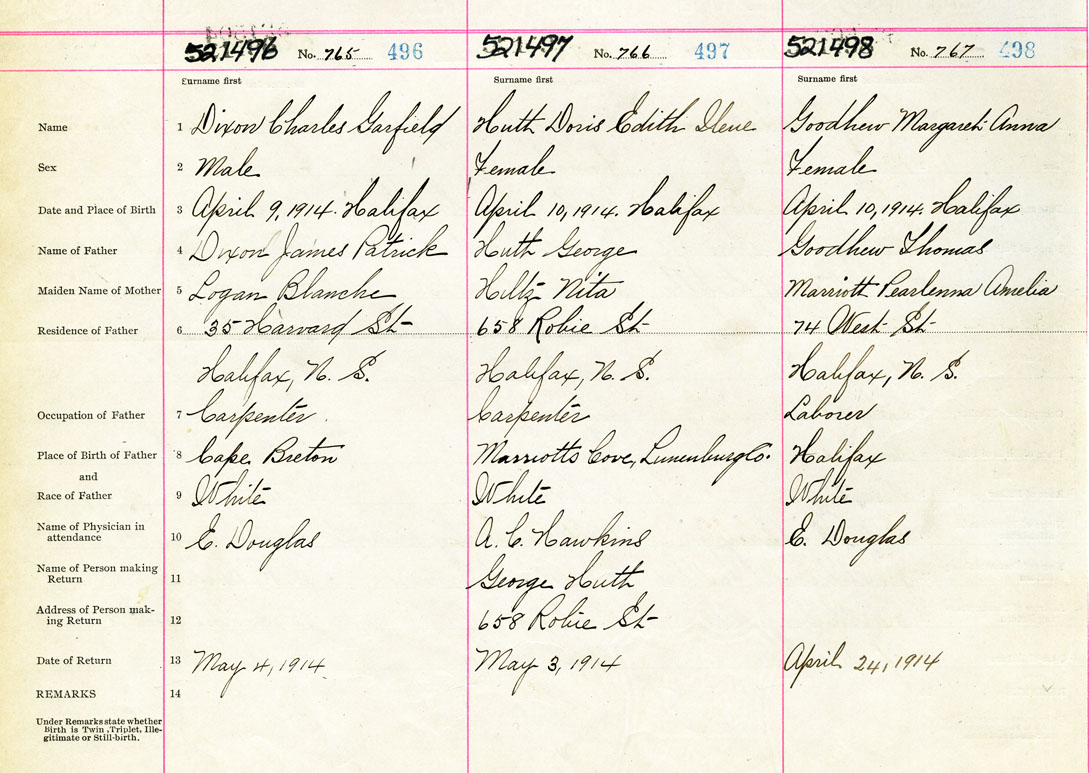 521496 No. 765 496 521497 No. 766 497 521498 No. 767 498
Surname first Surname first Surname first
Name 1 Dixon Charles Garfield Huth Doris Edith Ilene Goodhew Margaret Anna
Sex 2 Male Female Female
Date and Place of Birth 3 April 9, 1914. Halifax April 10, 1914. Halifax April 10, 1914. Halifax
Name of Father 4 Dixon James Patrick Huth George Goodhew Thomas
Maiden Name of Mother 5 Logan Blanche Hiltz Nita Marriott Pearlenna Amelia
Residence of Father 6 35 Harvard St 658 Robie St 74 West St
Halifax, N. S. Halifax, N. S. Halifax, N. S.
Occupation of Father 7 Carpenter Carpenter Laborer
Place of Birth of Father 8 Cape Breton Marriotts Cove, Lunenburg Co. Halifax
and
Race of Father 9 White White White
Name of Physician in
attendance 10 E. Douglas A. C. Hawkins E. Douglas
Name of Person making
Return 11 George Huth
Address of Person mak-
ing Return 12 658 Robie St
Date of Return 13 May 4, 1914 May 3, 1914 April 24, 1914
REMARKS 14
Under Remarks state whether
Birth is Twin, Triplet, Ille-
gitimate or Still-birth.